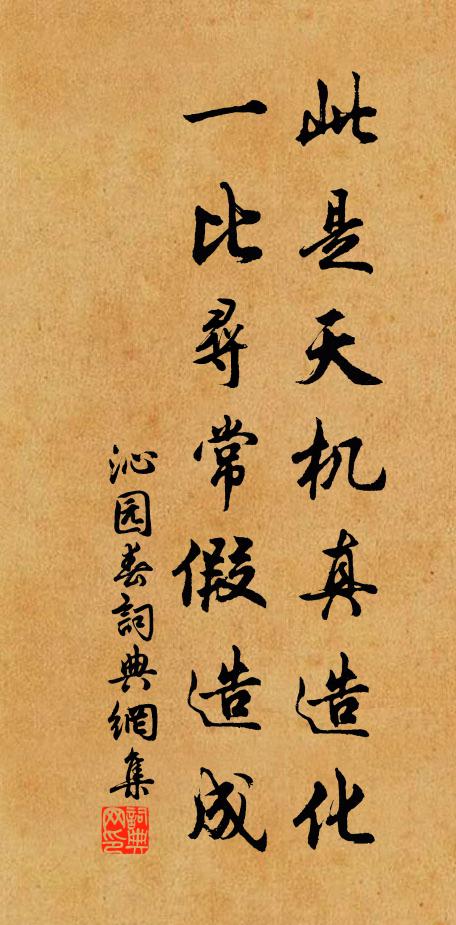 此是天机真造化
一比尋常假造成
沁园春詞典網集
詞典网印